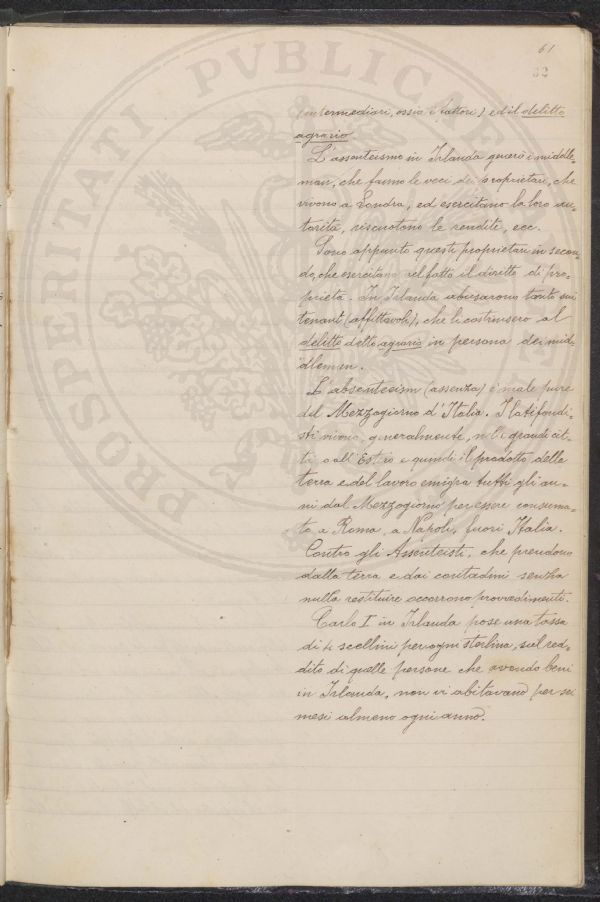 61
32
PROSPERITATI PVBLICAE
(intermediari, ossia i fattori) ed il delitto
agrario.
L'assenteismo in Irlanda generò i middle-
man, che fanno le veci dei proprietari, che
vivono a Londra, ed esercitano la loro au-
torità, riscuotono le rendite, ecc.
Sono appunto questi proprietari in secon-
do, che esercitano nel fatto il diretto di pro-
prietà. In Irlanda abusarono tanto sui
tenant (affittavoli), che li costrinsero al
delitto detto agrario in persona dei mid-
dlemen.
L'absenteism (assenza) è male pure
del Mezzogiorno d'Italia. I latifondi-
sti vivono, generalmente, nelle grandi cit-
tà o all'Estero e quindi il prodotto della
terra e del lavoro emigra tutti gli an-
ni dal Mezzogiorno per essere consuma-
to a Roma, a Napoli, fuori Italia.
Contro gli Assenteisti, che prendono
dalla terra e dai contadini senza
nulla restituire occorrono provvedimenti.
Carlo I in Irlanda pose una tassa
di 4 scellini per ogni sterlina, sul red-
dito di quelle persone che avendo beni
in Irlanda, non vi abitavano per sei
mesi almeno ogni anno.